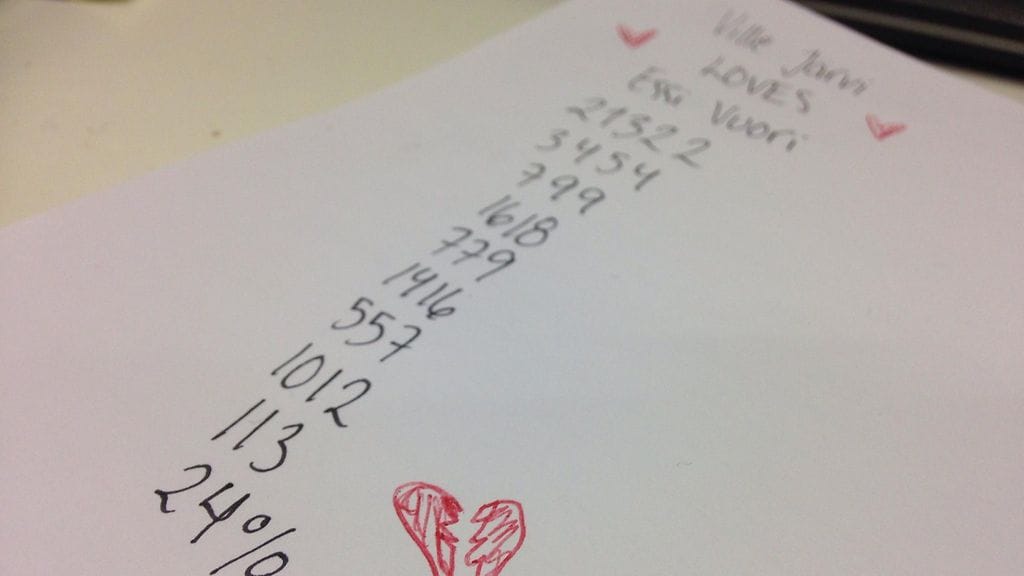 Ville Jarvi
LOVES
Essi Vuori
21322
3454
799
1618
779
1416
557
1012
113
24%